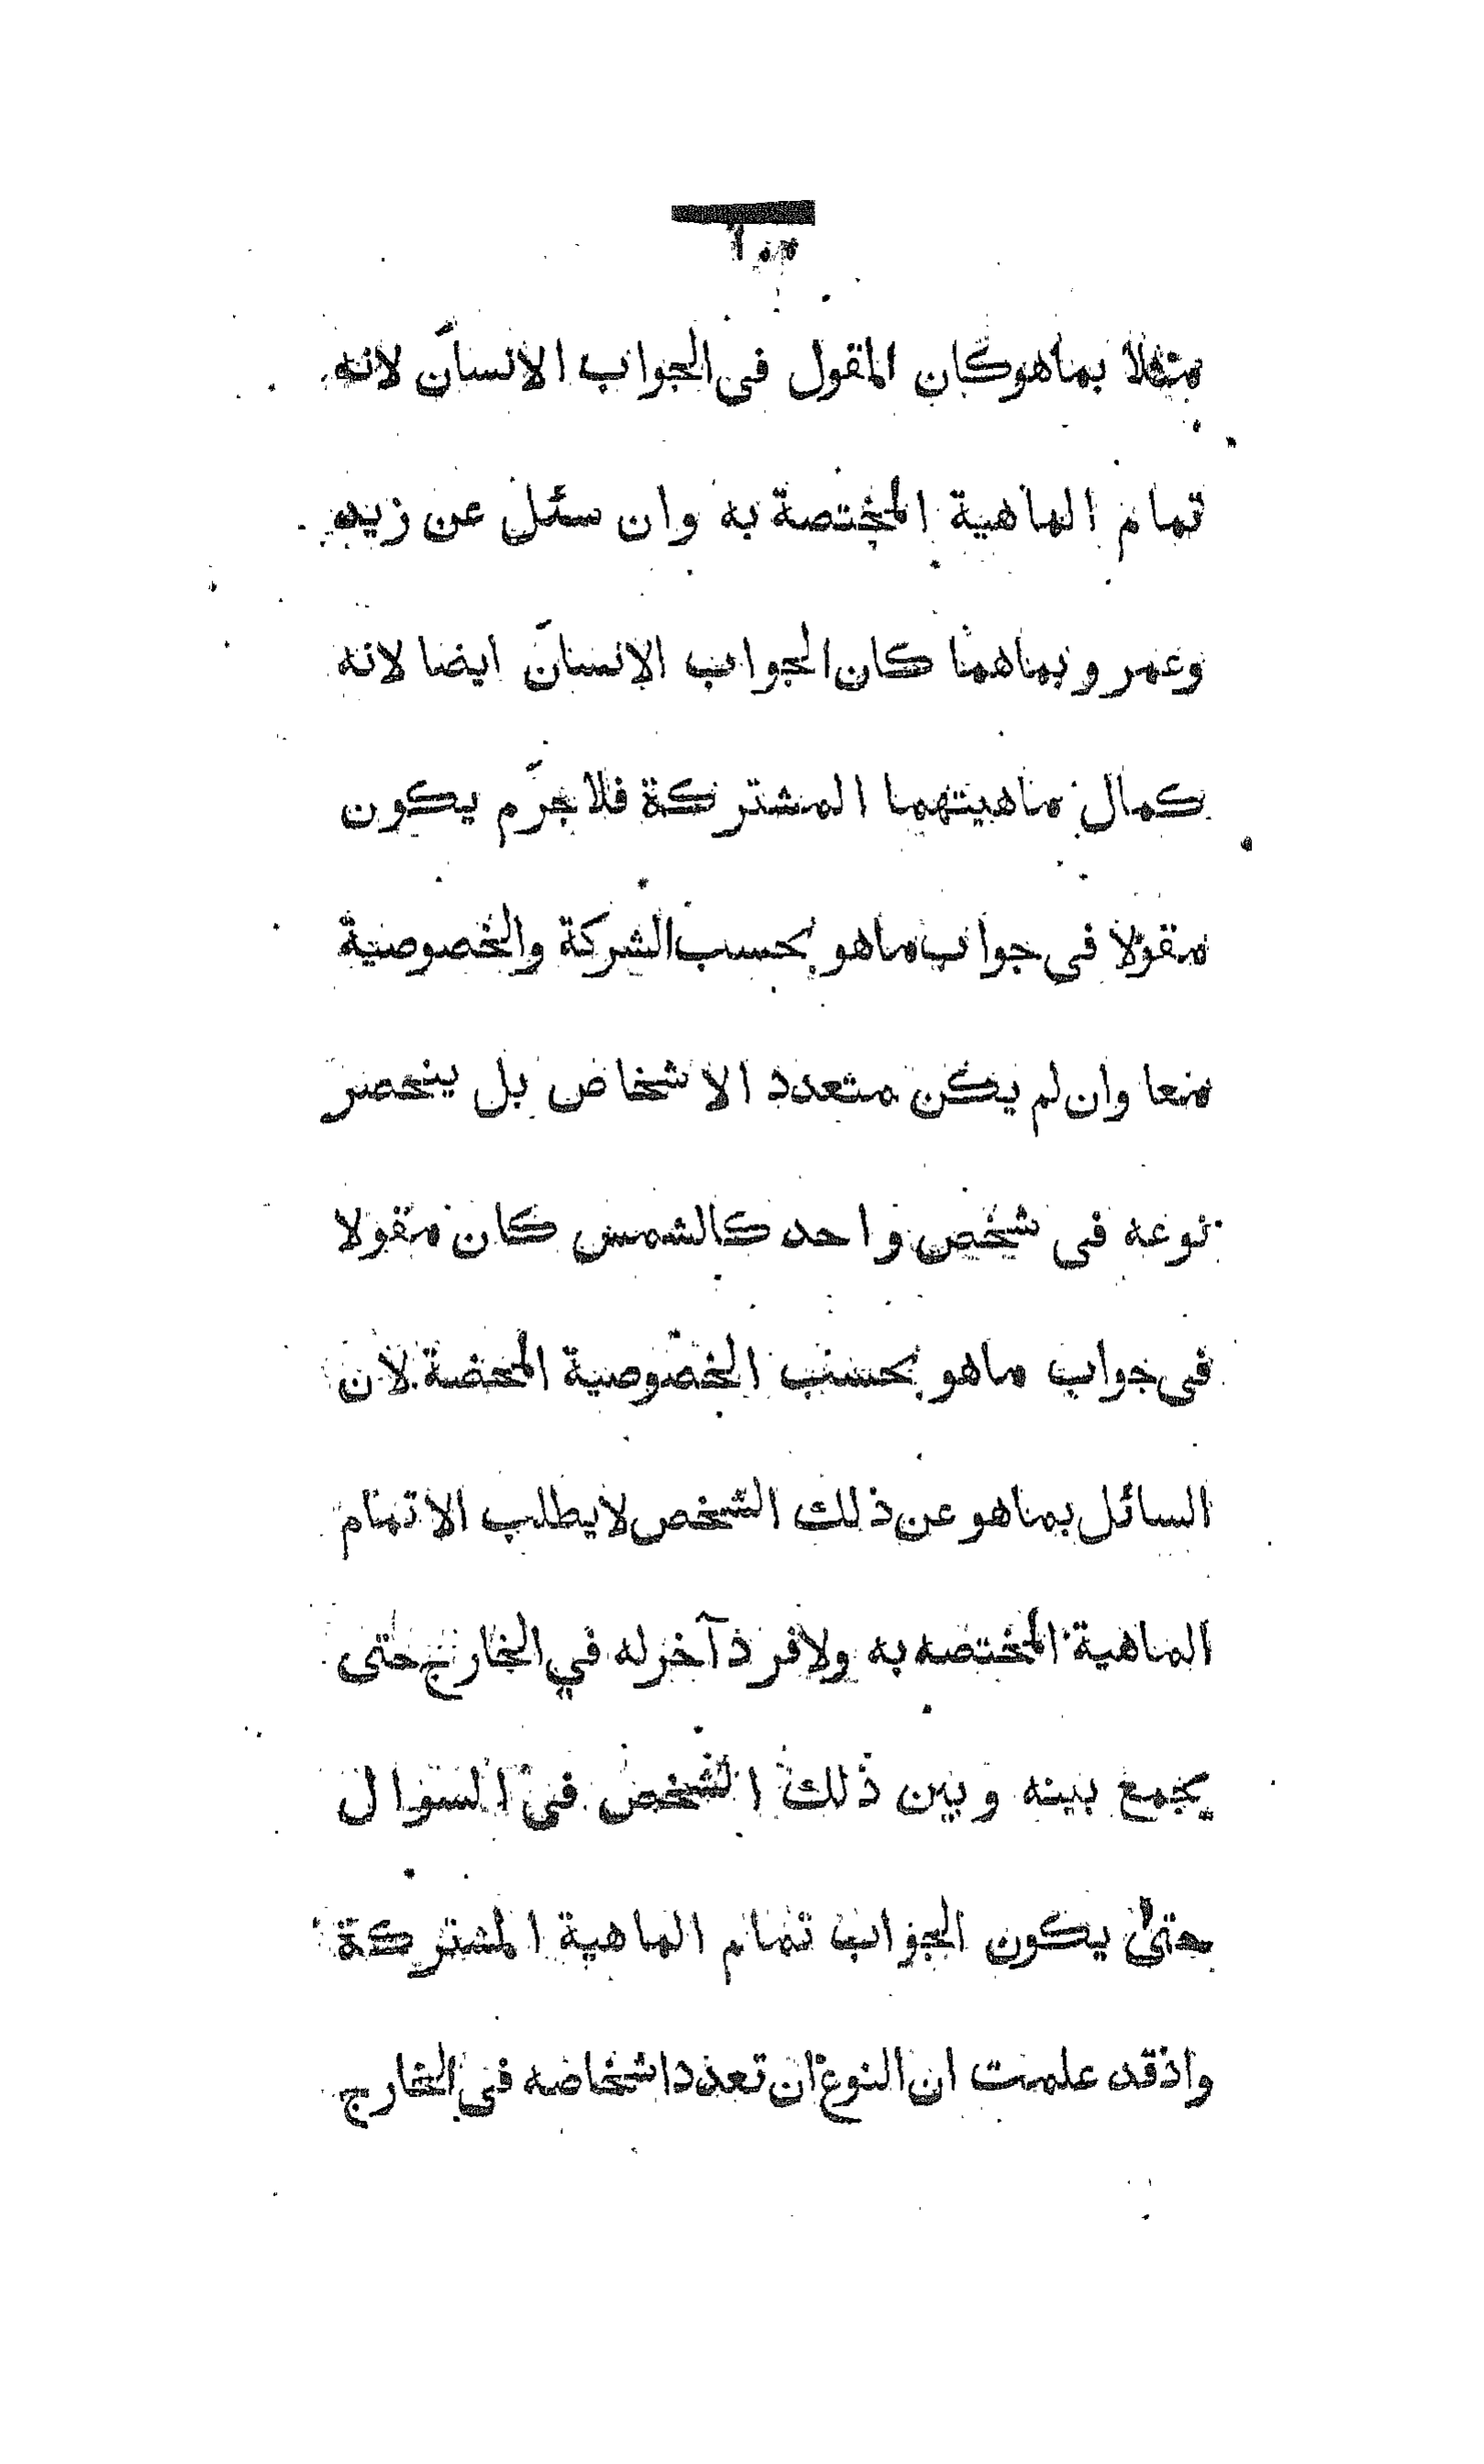 مثلا بماهوكان المقول فى الجواب الانسان لانه
تمام الماهية المختصة به وان سئل عن زيد
وعمر و بماهما كان الجواب الانسان ايضا لانه
كمال ماهيتهما المشتركة فلا جرم يكون
مقولا فى جواب ماهو بحسب الشركة والخصوصية
معا وان لم يكن متعدد الاشخاص بل ينحصر
نوعه فى شخص واحد كالشمس كان مقولا
فى جواب ماهو بحسب الخصوصية المحضة لان
السائل بماهو عن ذلك الشخص لايطلب الاتمام
الماهية المختصه به ولافرد آخرله في الخارج حتى
يجمع بينه وبين ذلك الشخص فى السوال
حتى يكون الجواب تمام الماهية المشتركة
واذقد علمت ان النوع ان تعدد اشخاصه فى الخارج